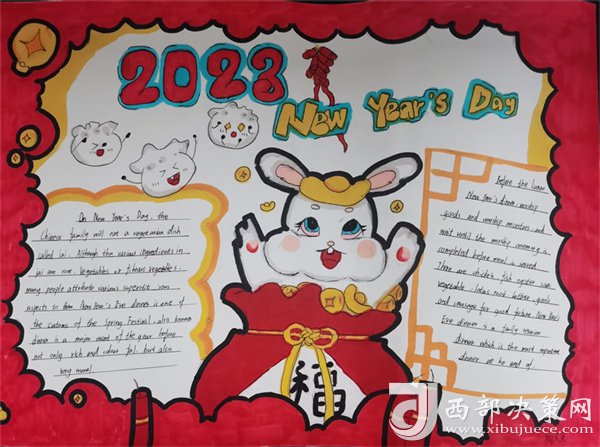 2023
New Year's Day
On New Year's Day, the
Chinese family will eat a vegetarian dish
called jai. Although the various ingredients in
jai are root vegetables or fibrous vegetables.
many people attribute various superstit ion
aspects to them New Year's Eve dinner is one of
the customs of the Spring Festival, also known
dinner is a major event of the year before
not only rich and colour ful. but also
very
Before the lunar
New Year's dinner worship
gods and worship ancestors and
wait until the worship ceremony is
completed before meal is served
There are chicken fish oyster
vegetable lotus root lettuce
and sausage for good fortune New Year's
Eve dinner is a family
dinner which is the most important
dinner at the end of.
福
西部决策网
www.xibujuece.com